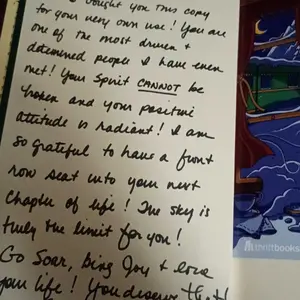 bought you this copy
for your very own use! You are
one of the most driven &
determined people I have ever
met! Your spirit CANNOT be
broken and your positive
attitude is radiant! I am
so grateful to have a front
row seat into your next
Chapter of life! The sky is
truly the limit for you!
Go Soar, bring Joy & love
your life! You deserve that!
thriftbooks